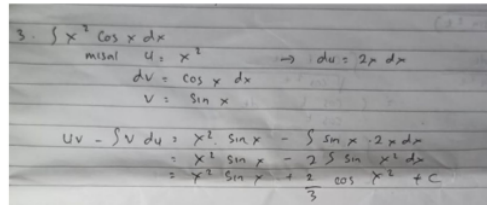 3. ∫ x² cos x dx
misal u = x² → du = 2x dx
dv = cos x dx
v = sin x
uv - ∫ v du = x². sin x - ∫ sin x . 2x dx
= x² sin x - 2 ∫ sin x² dx
= x² sin x + 2/3 cos x² + C